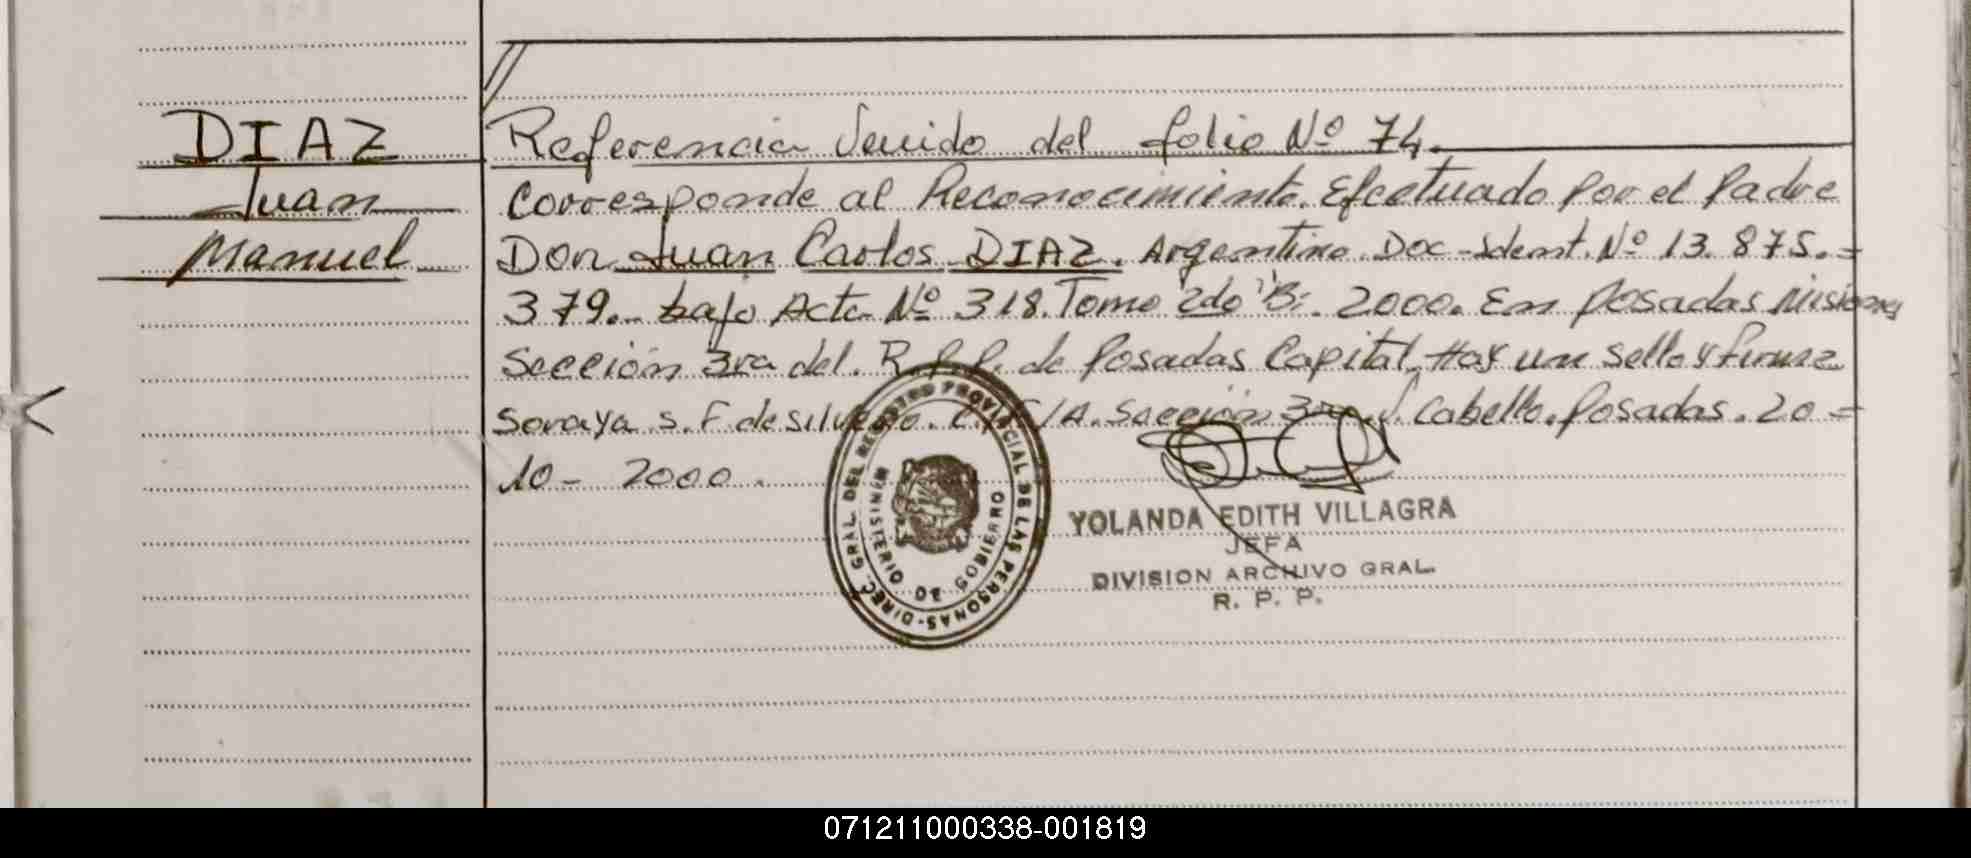 DIAZ
Juan
Manuel
Referencia Venido del folio Nº 74.
Corresponde al Reconocimiento. Efectuado por el Padre
Don Juan Carlos DIAZ. Argentino. Doc-Ident. Nº 13.875.=
379.- bajo Acta Nº 318. Tomo 2do "B". 2000. En Posadas Misiones
Sección 3ra del. R.P.P. de Posadas Capital. Hay un sello y firma
Soraya S. F de Silvero. Sección 3ra V. Cabello. Posadas. 20=
10- 2000.
DIREC. GRAL. DEL REGISTRO PROVINCIAL DE LAS PERSONAS-
MINISTERIO DE GOBIERNO
YOLANDA EDITH VILLAGRA
JEFA
DIVISION ARCHIVO GRAL.
R. P. P.
071211000338-001819